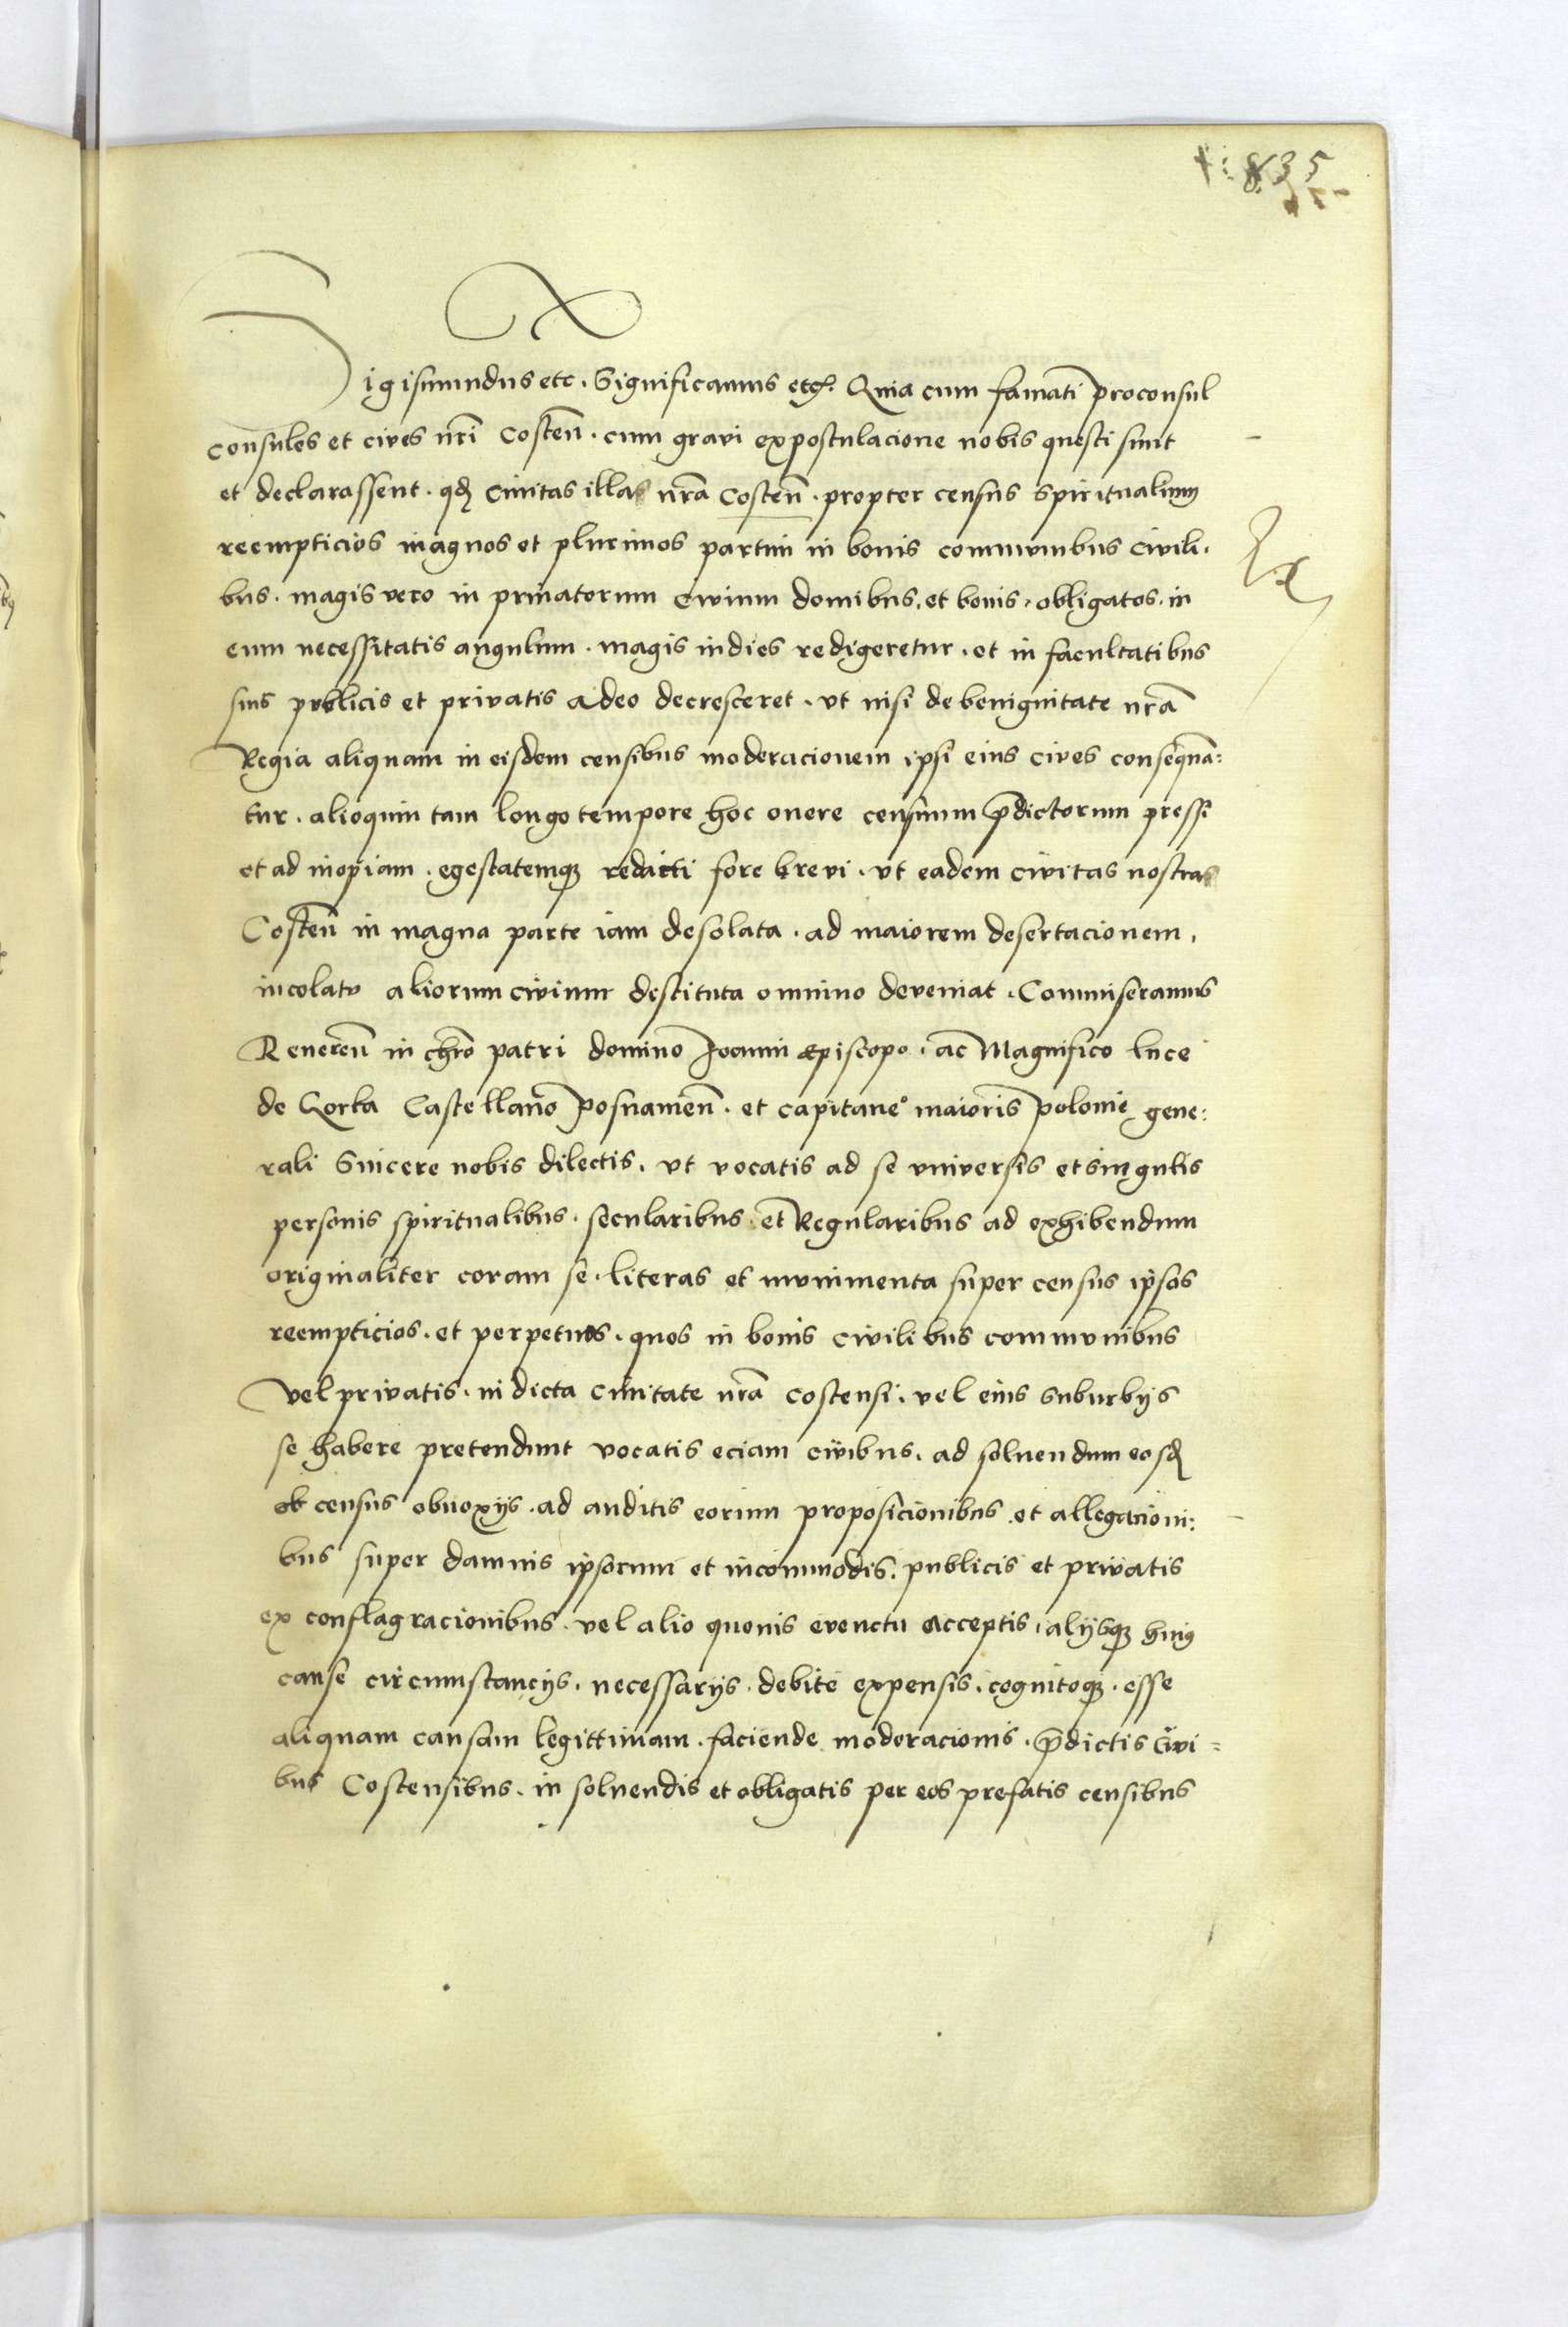 835
Sigismundus etc. Significamus etc. Quia cum famati proconsul
consules et cives nri Costen. cum gravi expostulacione nobis questi sunt
et declarassent. qd civitas illa nra Costen. propter census spiritualium
reempticios magnos et plurimos partim in bonis communibus civili.
bus. magis vero in privatorum civium domibus. et bonis. obligatos. in
eum necessitatis angulum. magis indies redigeretur. et in facultatibus
suis publicis et privatis adeo decresceret. vt nisi de benignitate nra
Regia aliquam in eisdem censibus moderacionem ipsi eius cives consequan:
tur. alioquin tam longo tempore hoc onere censuum pdictorum pressi
et ad inopiam. egestatemq redacti fore brevi. vt eadem civitas nostra
Costen in magna parte iam desolata. ad maiorem desertacionem.
incolatv aliorum civium destituta omnino deveniat. Commiseramus
Reveren in chro patri domino Joanni Episcopo. ac Magnifico Luce
de Gorka Castellano posnanien. et capitaneo maioris polonie gene:
rali Sincere nobis dilectis. vt vocatis ad se vniversis et singulis
personis spiritualibus. secularibus. et Regularibus ad exhibendum
originaliter coram se. literas et mvnimenta super census ipsos
reempticios. et perpetuos. quos in bonis civilibus commvnibus
vel privatis. in dicta civitate nra costensi. vel eius suburbijs
se habere pretendunt vocatis eciam civibus. ad solvendum eosd
ob census obnoxijs. ad auditis eorum proposicionibus et allegacioni:
bus super damnis ipsorum et incommodis. publicis et privatis
ex conflagracionibus. vel alio quovis evenctu acceptis. alijsq huius
cause circumstancijs. necessarijs. debite expensis. cognitoq. esse
aliquam causam legittimam. faciende moderacionis. pdictis civi=
bus Costensibus. in solvendis et obligatis per eos prefatis censibus